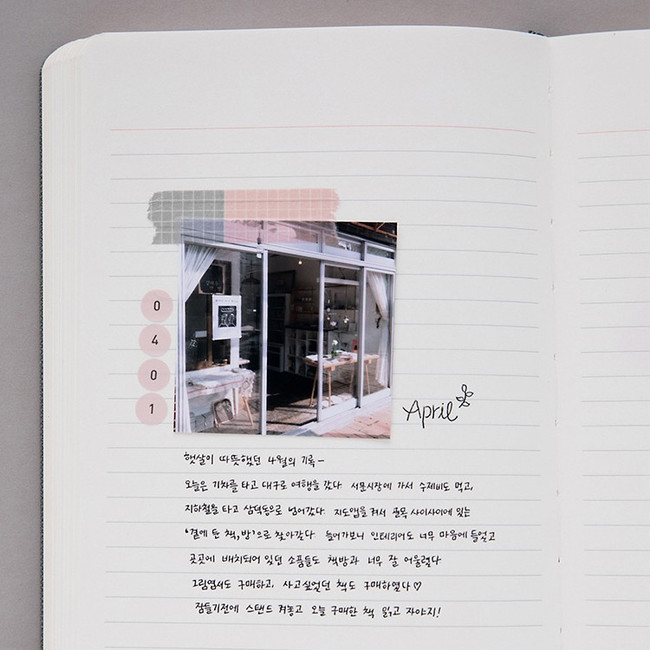 0
4
0
1
April
햇살이 따뜻했던 4월의 기록-
오늘은 기차를 타고 대구로 여행을 갔다 서문시장에 가서 수제비도 먹고,
지하철을 타고 삼덕동으로 넘어갔다 지도앱을 켜서 골목 사이사이에 있는
'곁에 둔 책,방'으로 찾아갔다 들어가보니 인테리어도 너무 마음에 들었고
곳곳에 배치되어 있던 소품들도 책방과 너무 잘 어울렸다
그림엽서도 구매하고, 사고싶었던 책도 구매하였다♡
잠들기전에 스탠드 켜놓고 오늘 구매한 책 읽고 자야지!